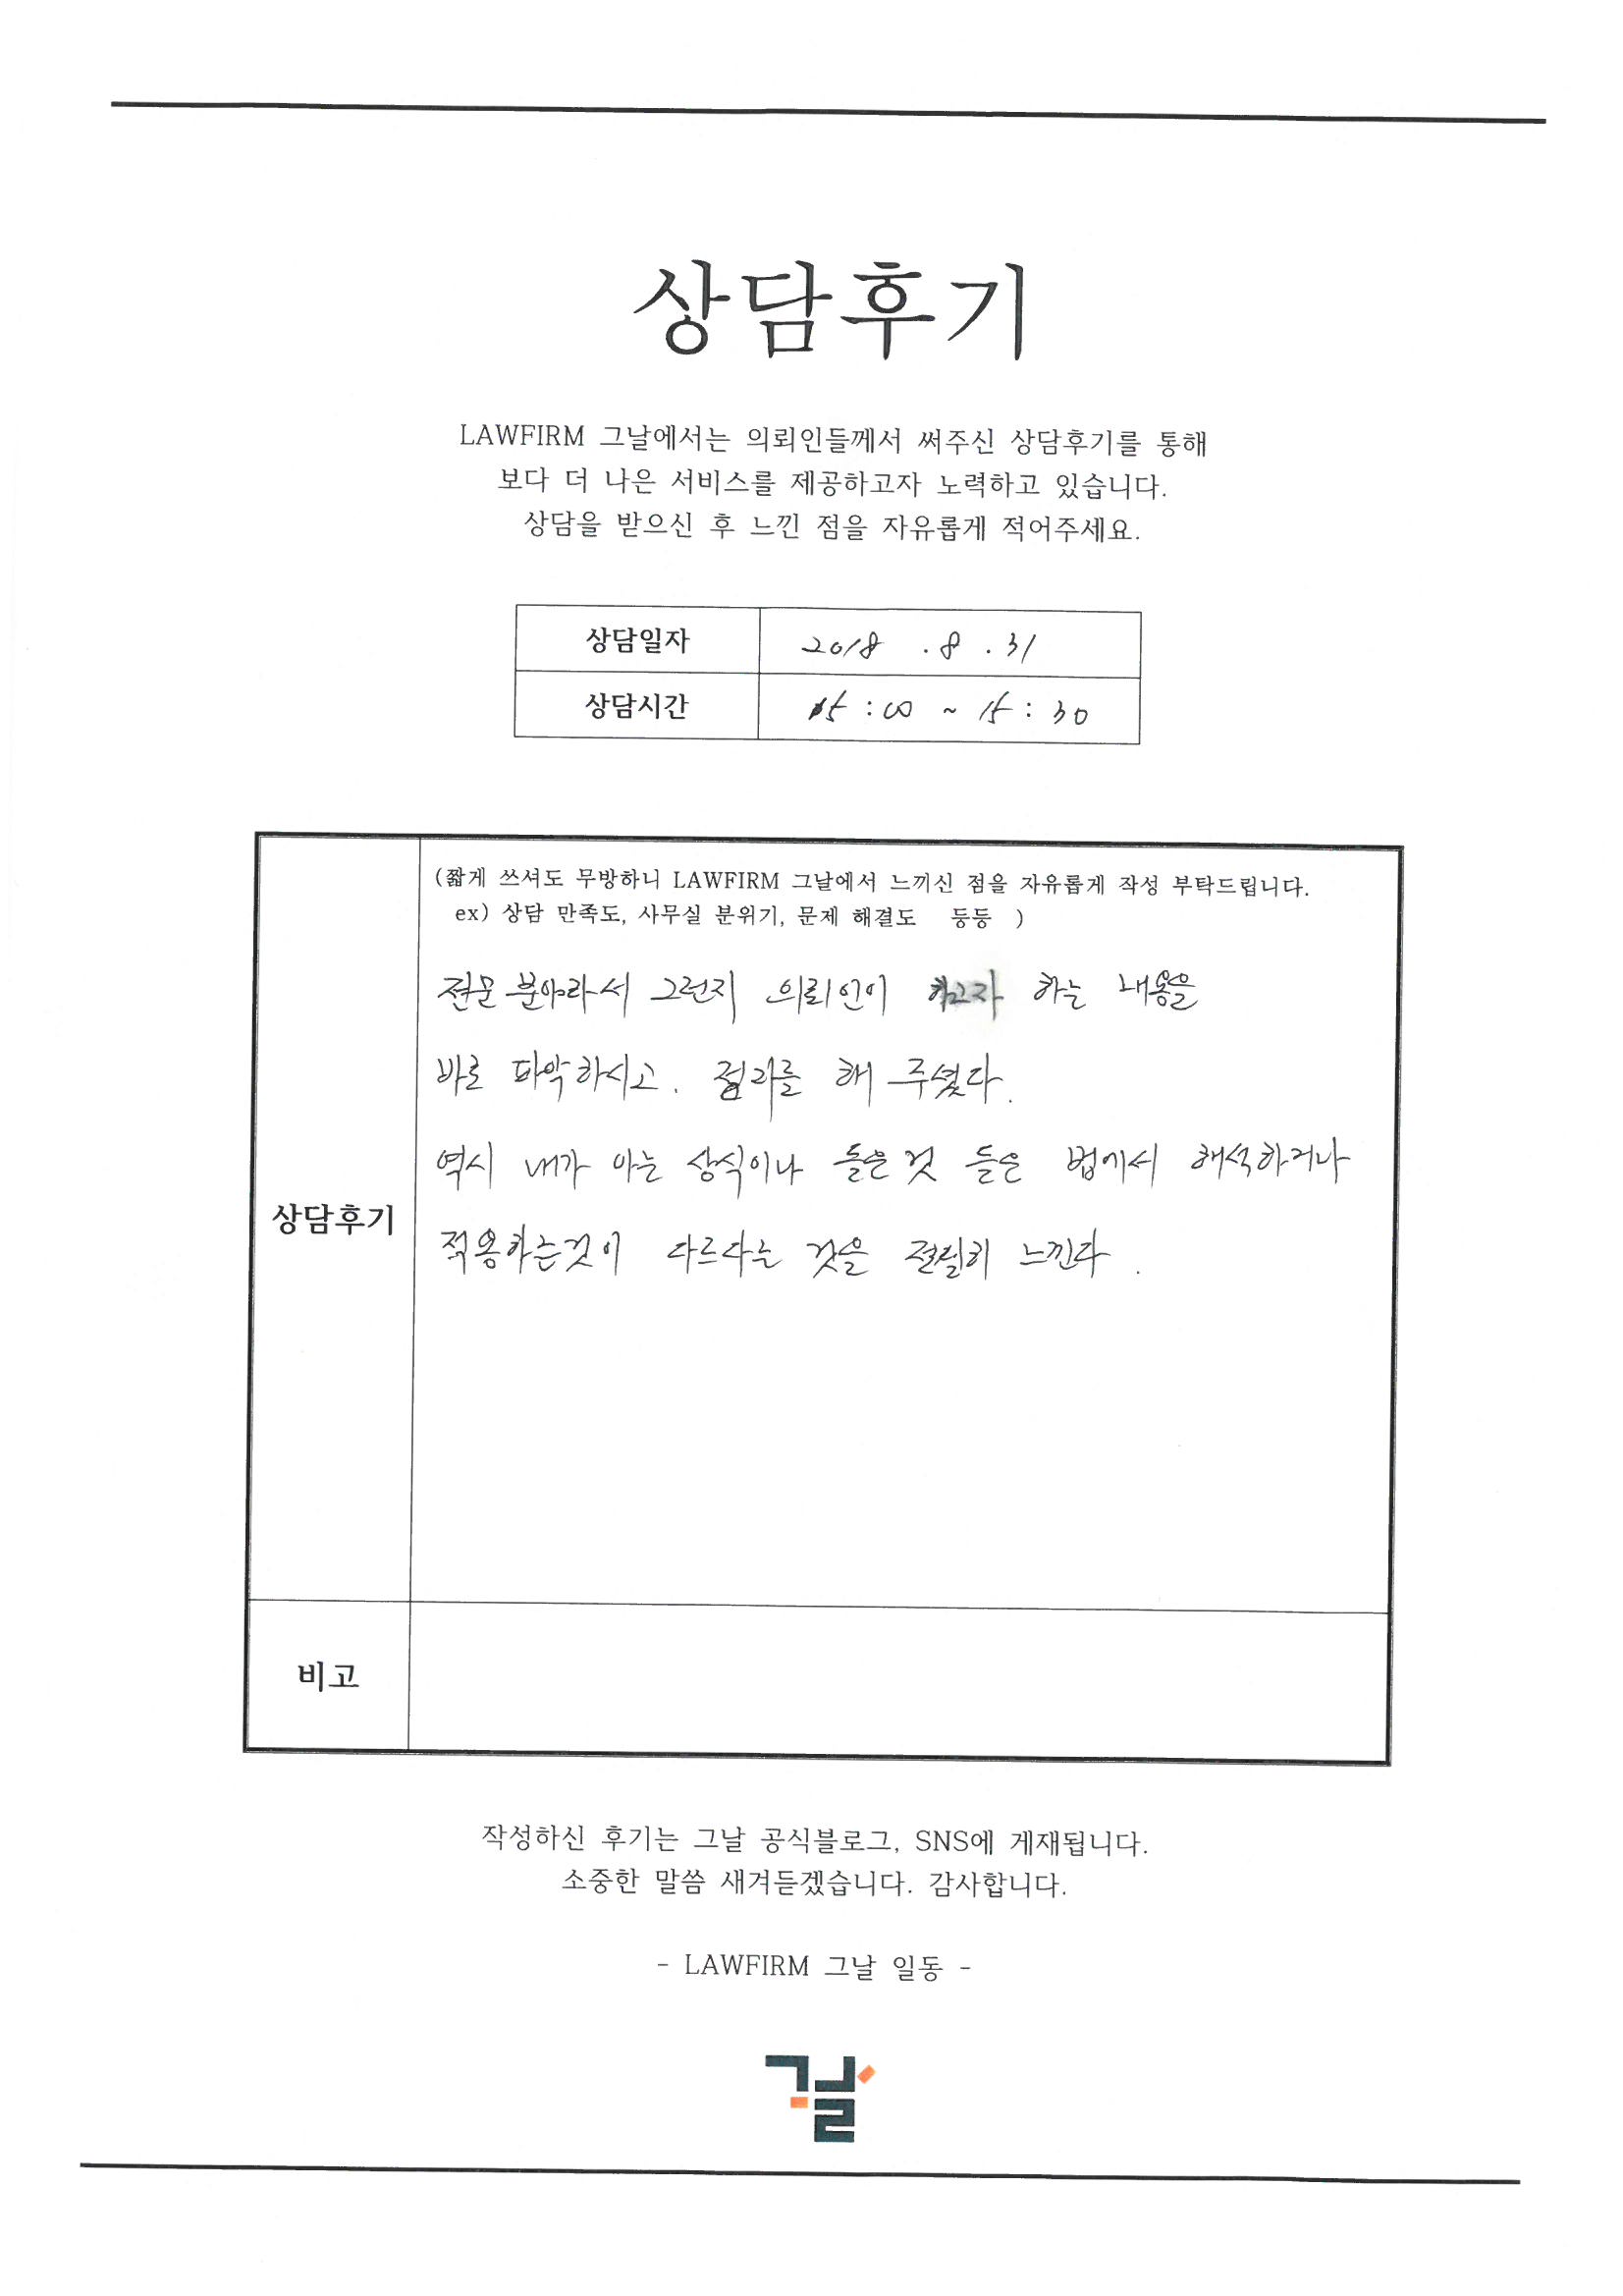 상담후기
LAWFIRM 그날에서는 의뢰인들께서 써주신 상담후기를 통해
보다 더 나은 서비스를 제공하고자 노력하고 있습니다.
상담을 받으신 후 느낀 점을 자유롭게 적어주세요.
상담일자 2018 . 8 . 31
상담시간 15 : 00 ~ 15 : 30
(짧게 쓰셔도 무방하니 LAWFIRM 그날에서 느끼신 점을 자유롭게 작성 부탁드립니다.
ex) 상담 만족도, 사무실 분위기, 문제 해결도 등등 )
전문 분야라서 그런지 의뢰인이 하는 내용을
바로 파악하시고. 정리를 해 주셨다.
역시 내가 아는 상식이나 들은것 들은 법에서 해석하거나
적용하는것이 다르다는 것을 절실히 느낀다.
상담후기
비고
작성하신 후기는 그날 공식블로그, SNS에 게재됩니다.
소중한 말씀 새겨듣겠습니다. 감사합니다.
- LAWFIRM 그날 일동 -
그날